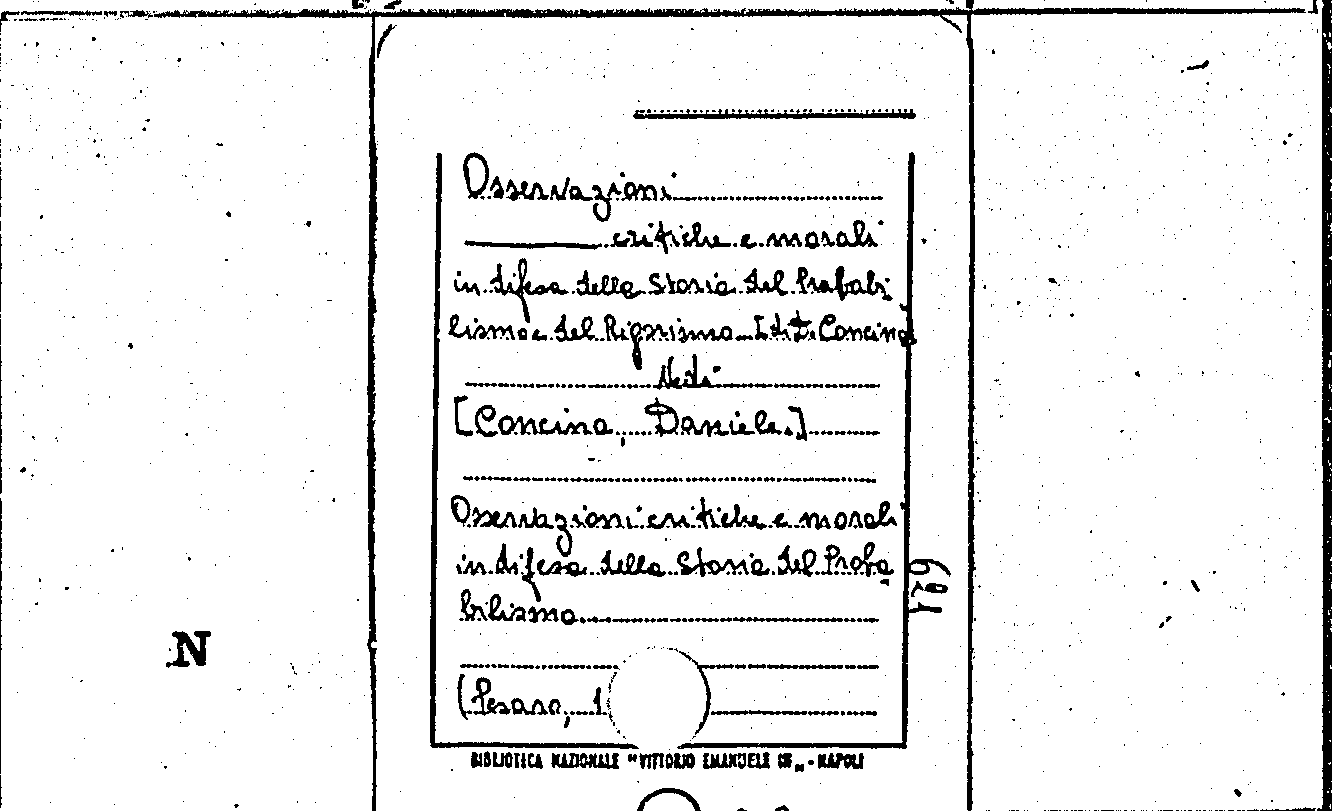 Osservazioni
critiche e morali
in difesa della Storia del Probabi
lismo e del Rigorismo Concina
Vedi
[Concina, Daniele.]
Osservazioni critiche e morali
in difesa della Storia del Proba
bilismo
(Pesaro, 1
N
BIBLIOTECA NAZIONALE "VITTORIO EMANUELE III" - NAPOLI